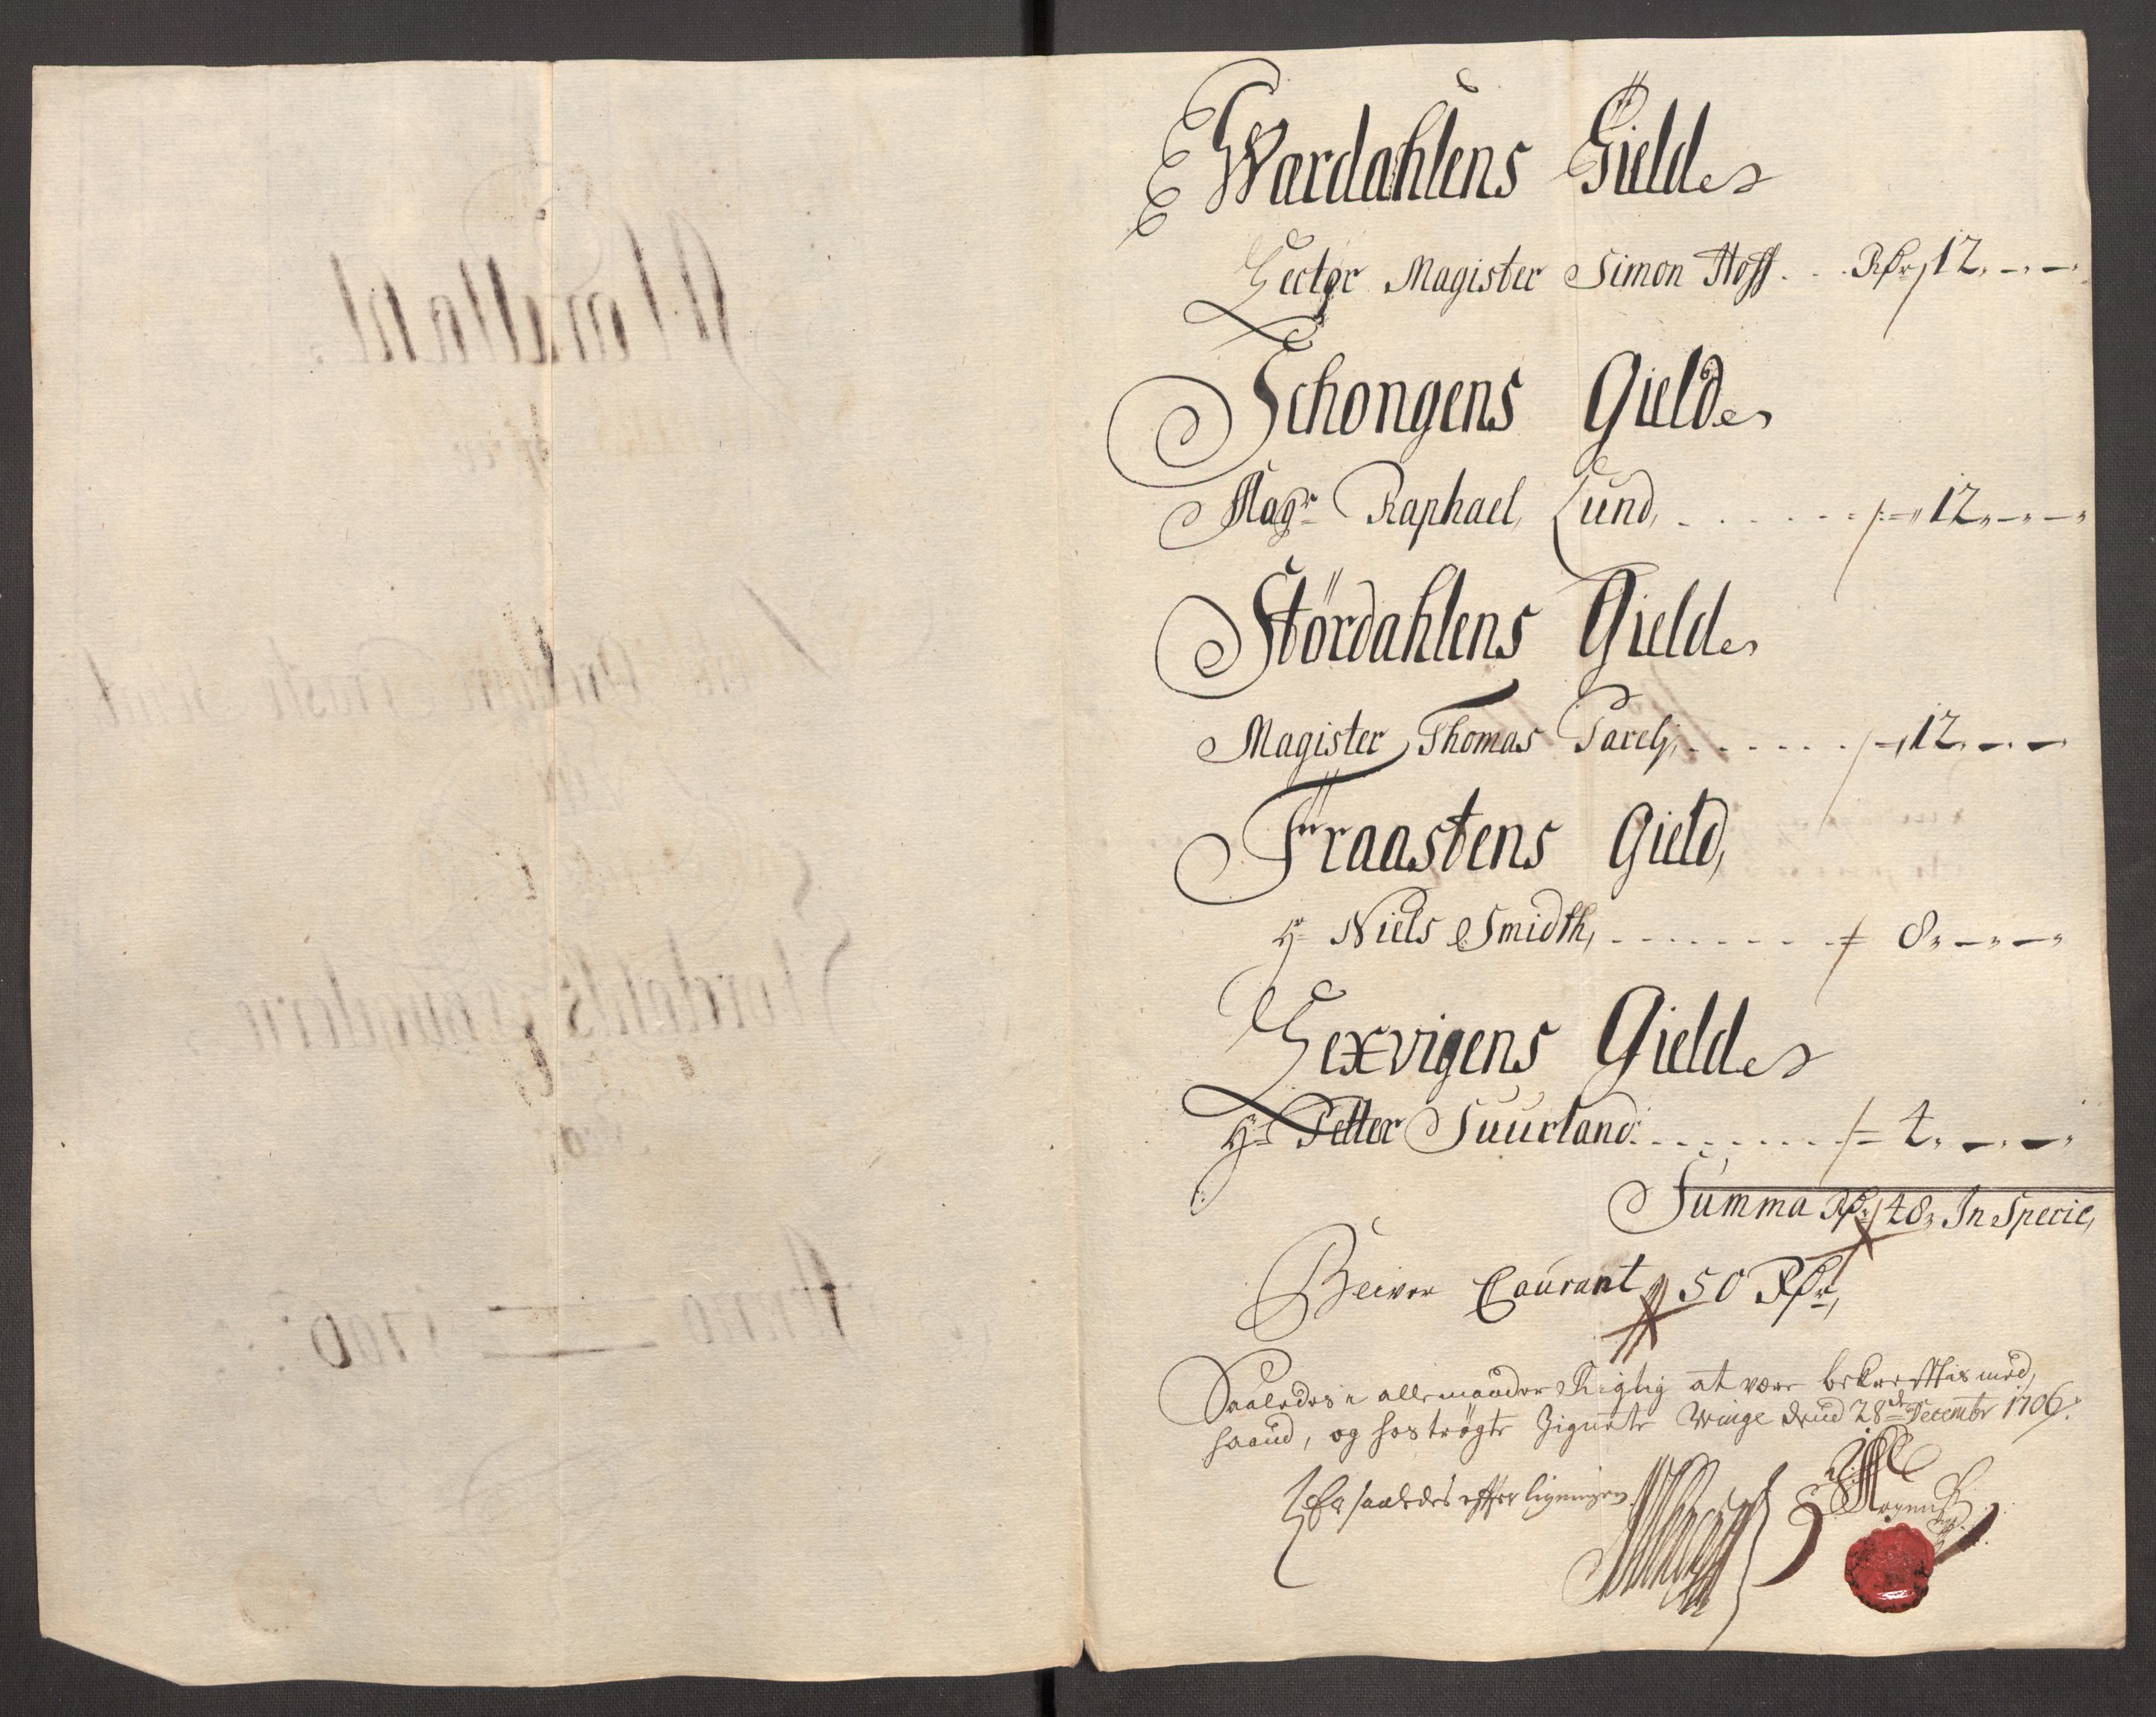 Wærdahlens Gield
Lector Magister Simon Hoff . . . Rdr 12. - . -
Schongens Gield
Magr Raphael Lund, . . . . . . 12 - -
Stördahlens Gield
Magister Thomas Parelj, . . . . . . 12. - . -
Fraastens Gield,
Hr Niels Smidth, . . . . . . . 8. - . -
Lexvigens Gield
Hr Petter Suurland: . . . . . . . 4. - . -
Summa Rdr 48, In Specie,
Beiver Courant 50 Rdr,
Saaledes i alle maader Rigtig at være bekreftis med
haand, og hoströgte Zignete Winge dend 28de Decembr 1706.
Er saaledes efter ligningen